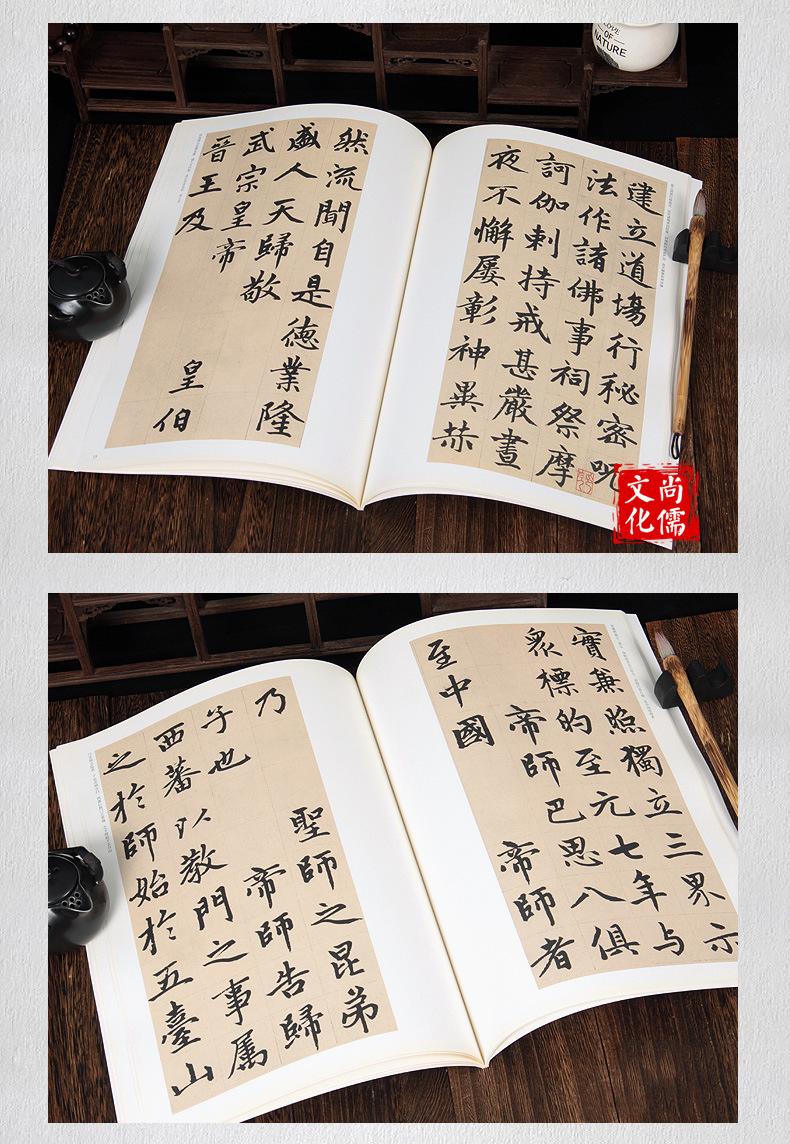 LOVE
OF
NATURE
建立道場行秘密呪
法作諸佛事祠祭摩
訶伽剌持戒甚嚴晝
夜不懈屡彰神異赫
然流聞自是德業隆
盛人天歸敬
武宗皇帝 皇伯
晉王及
尚儒
文化
實兼照獨立三界示
眾標的至元七年与
帝師巴思八俱
至中國 帝師者
乃 聖師之昆弟
子也 帝師告歸
西蕃以教門之事属
之於師始於五臺山